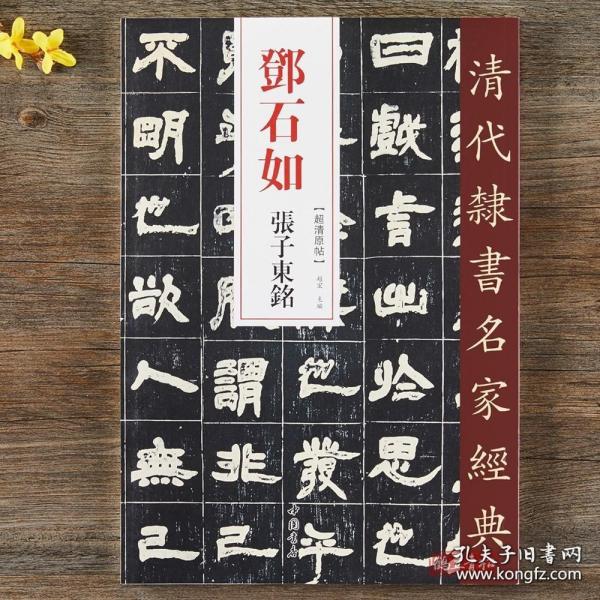 清代隸書名家經典
鄧石如
張子東銘
【超清原帖】
趙宏 主編
曰戲言出於思也
也發乎
謂非己
不明也欲人無己
中国书店
孔夫子旧书网
www.kongfz.com